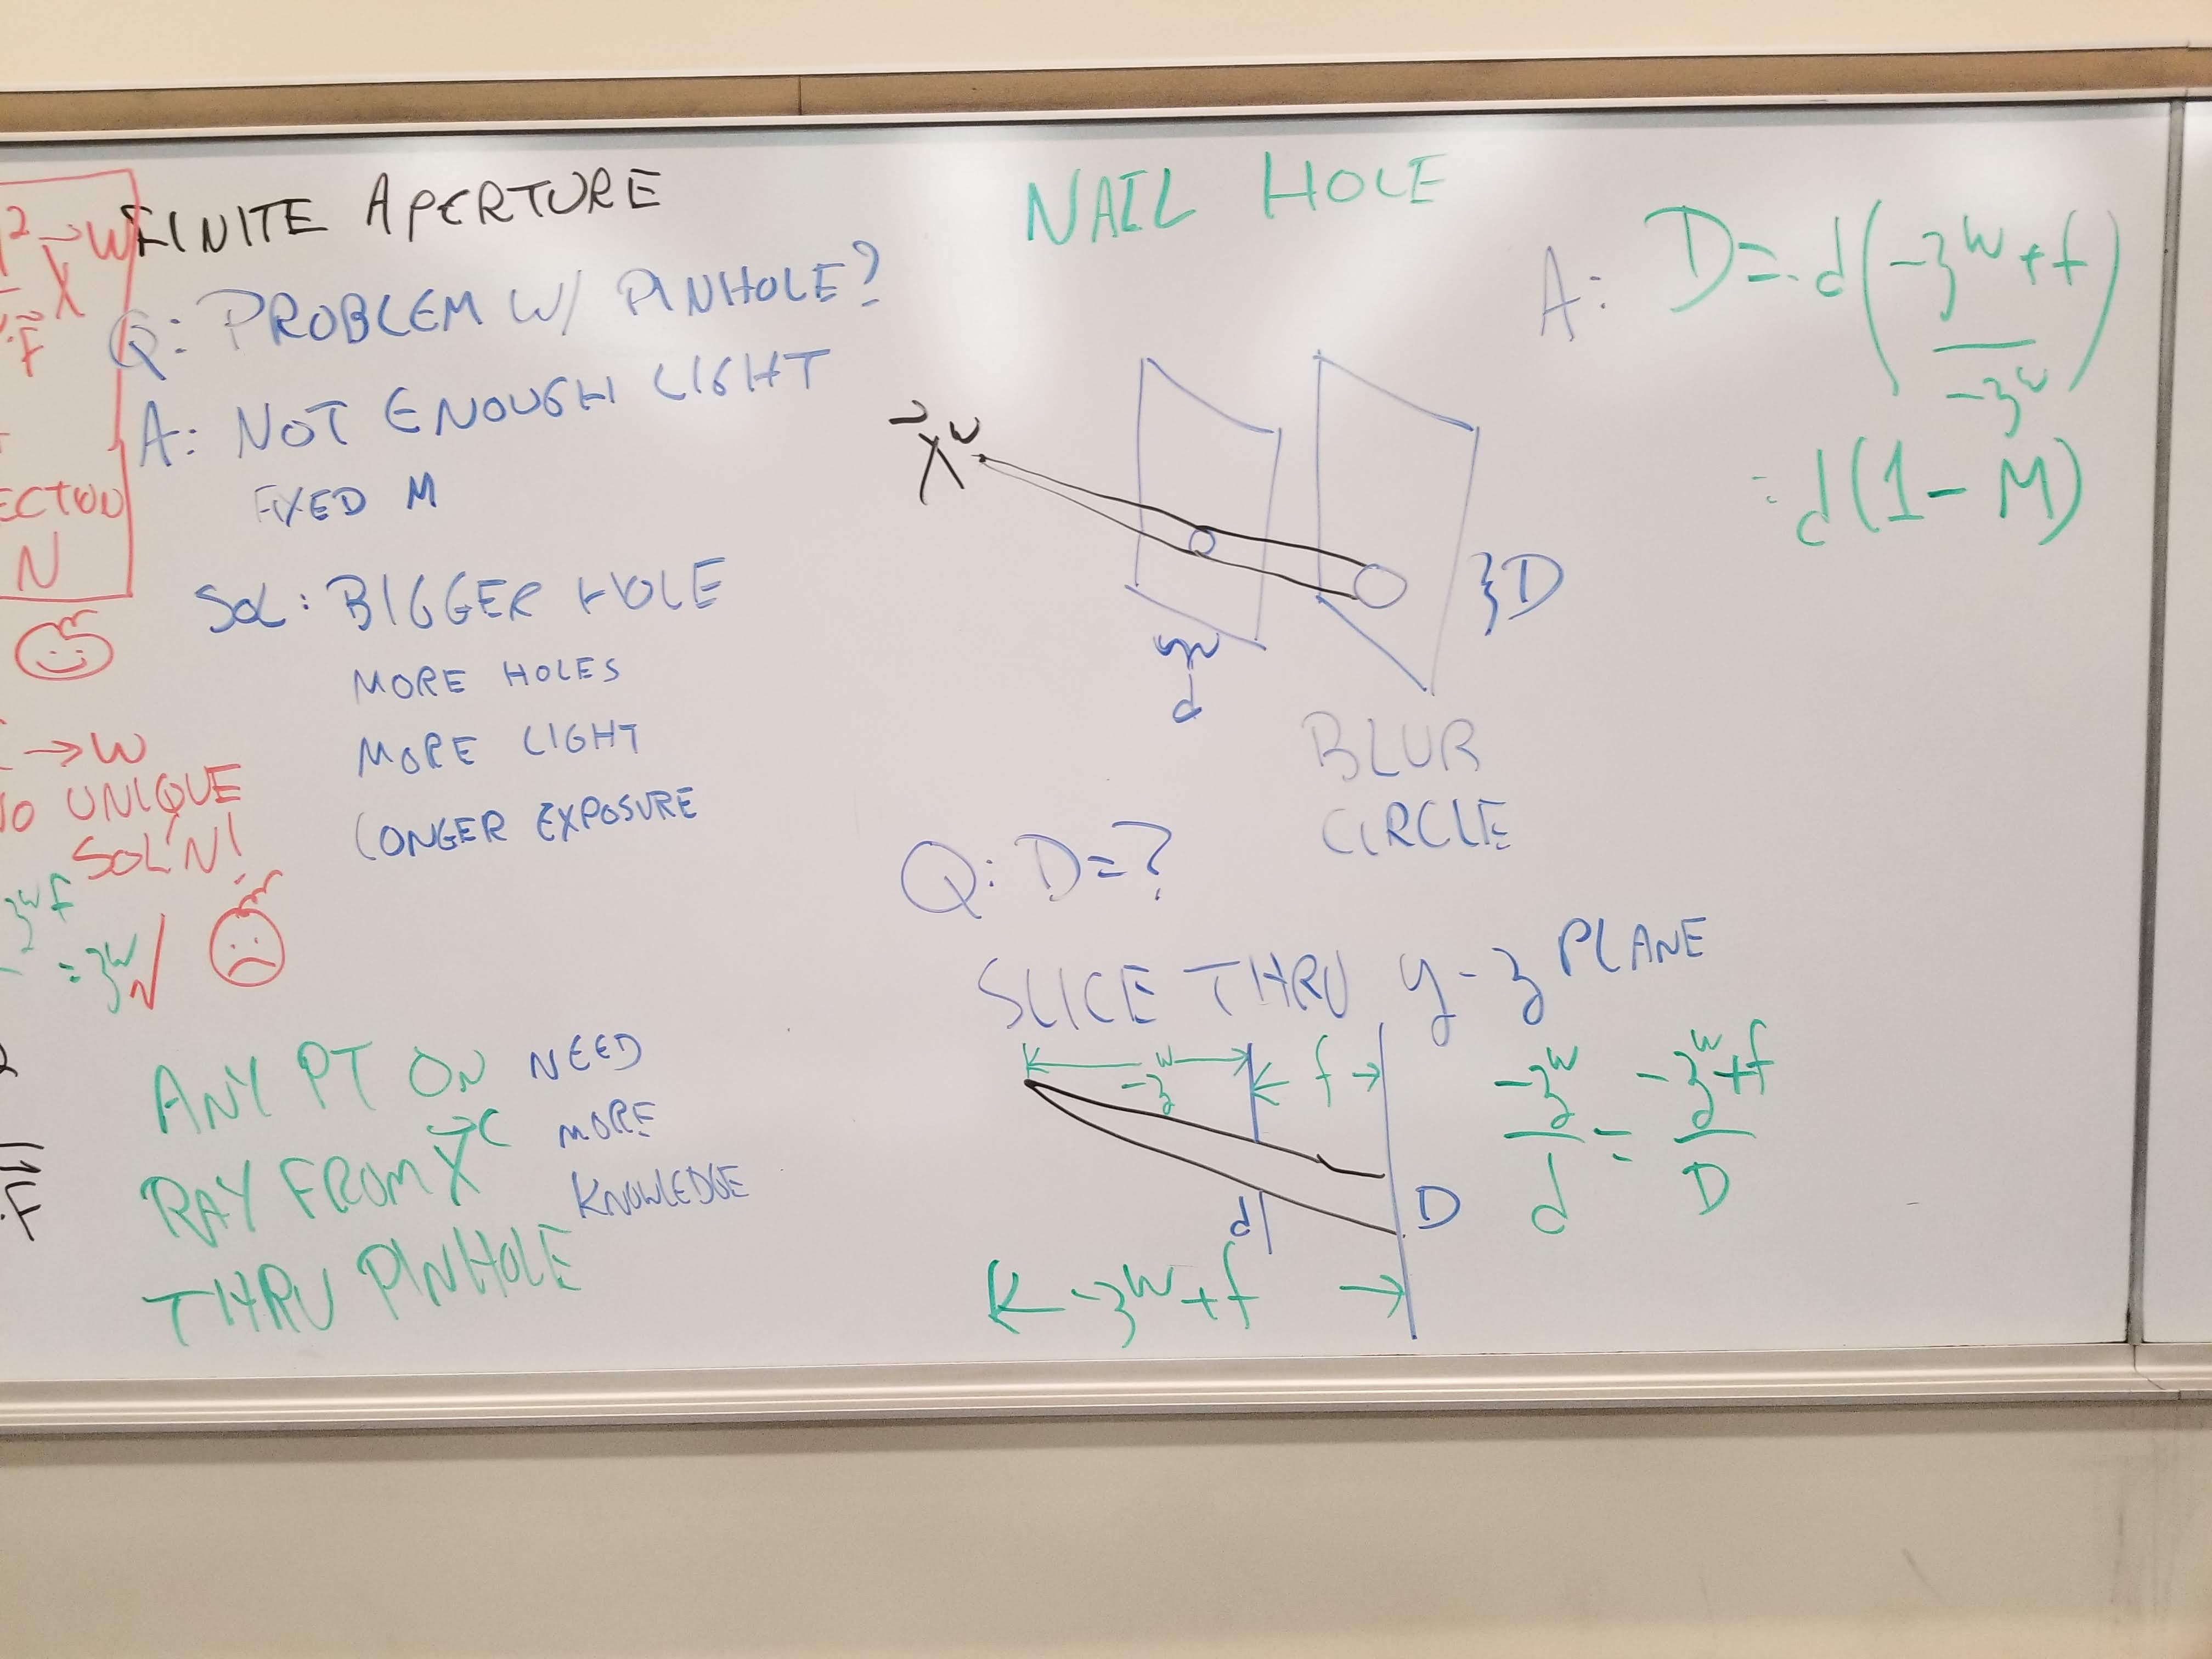 2 →W
X
F
ECTION
N
→W
NO UNIQUE
SOL'N!
z^w f
= z^w √
F
FINITE APERTURE
Q: PROBLEM W/ PINHOLE?
A: NOT ENOUGH LIGHT
FIXED M
SOL: BIGGER HOLE
MORE HOLES
MORE LIGHT
LONGER EXPOSURE
ANY PT ON
RAY FROM X^C
THRU PINHOLE
NEED
MORE
KNOWLEDGE
NAIL HOLE
X^w
d
}D
BLUR
CIRCLE
Q: D=?
SLICE THRU y-z PLANE
-z^w
f
d
D
-z^w+f
-z^w/d = -z^w+f/D
A: D = d(-z^w+f/-z^w)
= d(1-M)